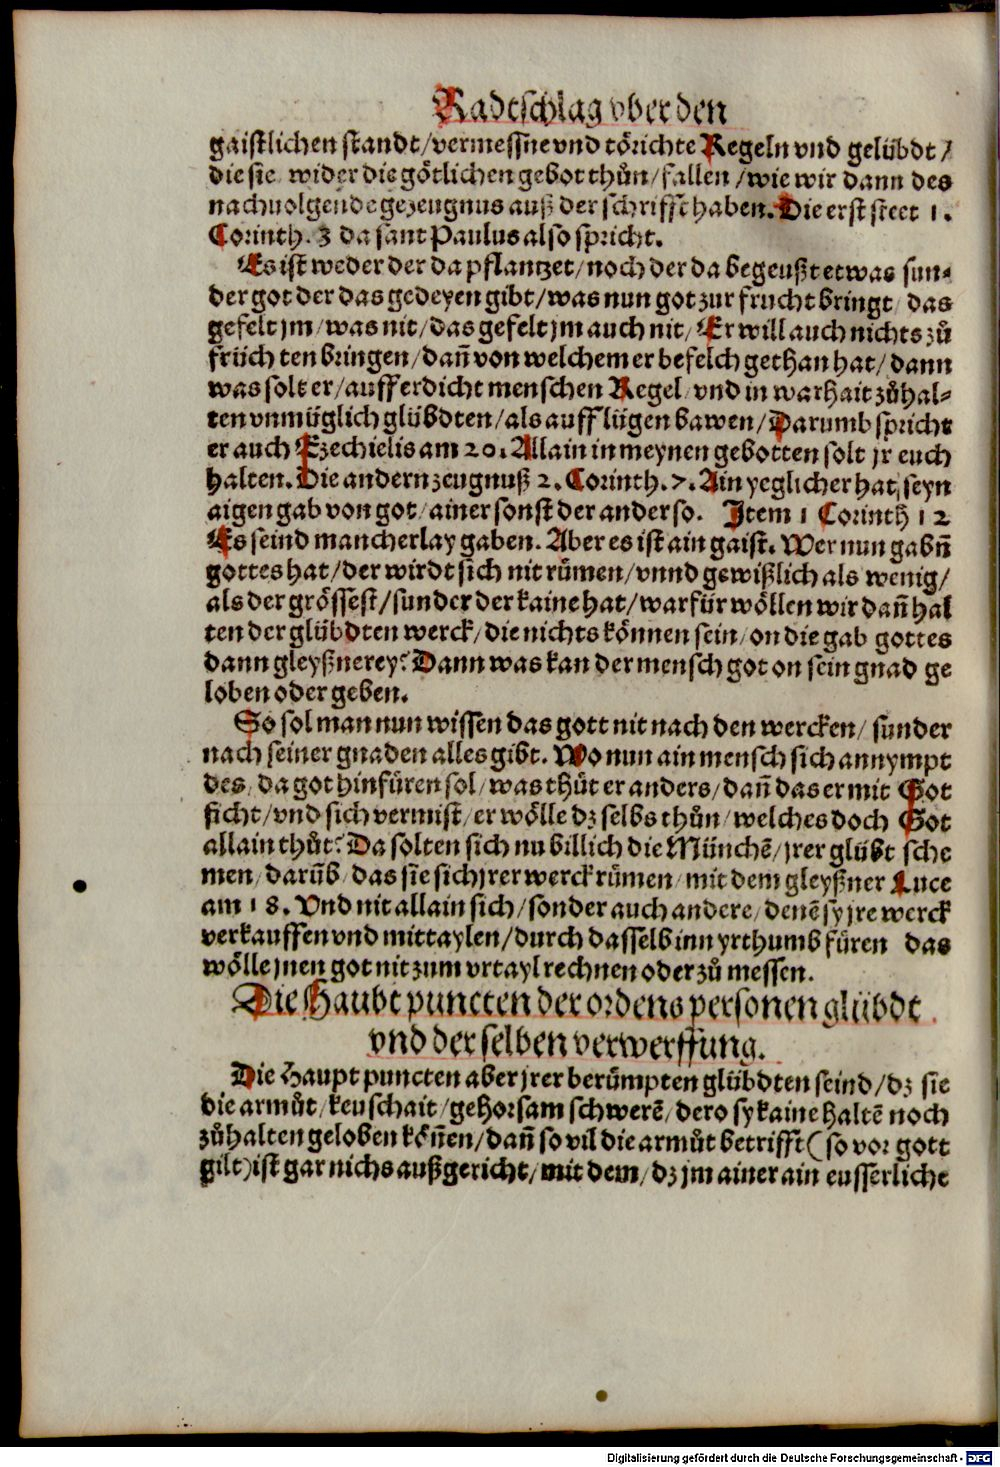 Radtschlag vber den
gaistlichen standt/vermessne vnd törichte Regeln vnd gelübdt/
die sie wider die götlichen gebot thůn/fallen/wie wir dann des
nachuolgende gezeugnus auß der schrifft haben. Die erst steet 1.
Corinth. 3 da sant Paulus also spricht.
Es ist weder der da pflantzet/noch der da begeußt etwas sun-
der got der das gedeyen gibt/was nun got zur frucht bringt/das
gefelt jm/was nit/das gefelt jm auch nit/Er will auch nichts zů
früchten bringen/dañ von welchem er befelch gethan hat/dann
was solt er/auff erdicht menschen Regel/vnd in warhait zůhal-
ten vnmüglich glübdten/als auff lügen bawen/Darumb spricht
er auch Ezechielis am 20. Allain in meynen gebotten solt jr euch
halten. Die andern zeugnuß 2. Corinth. 7. Ain yeglicher hat seyn
aigen gab von got/ainer sonst der ander so. Item 1 Corinth 12
Es seind mancherlay gaben. Aber es ist ain gaist. Wer nun gabñ
gottes hat/der wirdt sich nit růmen/vnnd gewißlich als wenig/
als der grössest/sunder der kaine hat/warfür wöllen wir dañ hal
ten der glübdten werck/die nichts können sein/on die gab gottes
dann gleyßnerey? Dann was kan der mensch got on sein gnad ge
loben oder geben.
So sol man nun wissen das gott nit nach den wercken/sunder
nach seiner gnaden alles gibt. Wo nun ain mensch sich annympt
des/da got hinfüren sol/was thůt er anders/dañ das er mit Got
ficht/vnd sich vermist/er wölle dz selbs thůn/welches doch Got
allain thůt? Da solten sich nu billich die Münchē/jrer glübt sche
men/darūb/das sie sich jrer werck růmen/mit dem gleyßner Luce
am 18. Vnd nit allain sich/sonder auch andere/denē sy jre werck
verkauffen vnd mittaylen/durch dasselb inn yrthumb füren das
wölle jnen got nit zum vrtayl rechnen oder zů messen.
Die Haubt puncten der ordens personen glübdt
vnd der selben verwerffung.
Die Haupt puncten aber jrer berůmpten glübdten seind/dz sie
die armůt/keuschait/gehorsam schwerē/dero sy kaine haltē noch
zůhalten geloben köñen/dañ so vil die armůt betrifft (so vor gott
gilt) ist gar nichs außgericht/mit dem/dz jm ainer ain eusserliche
Digitalisierung gefördert durch die Deutsche Forschungsgemeinschaft - DFG